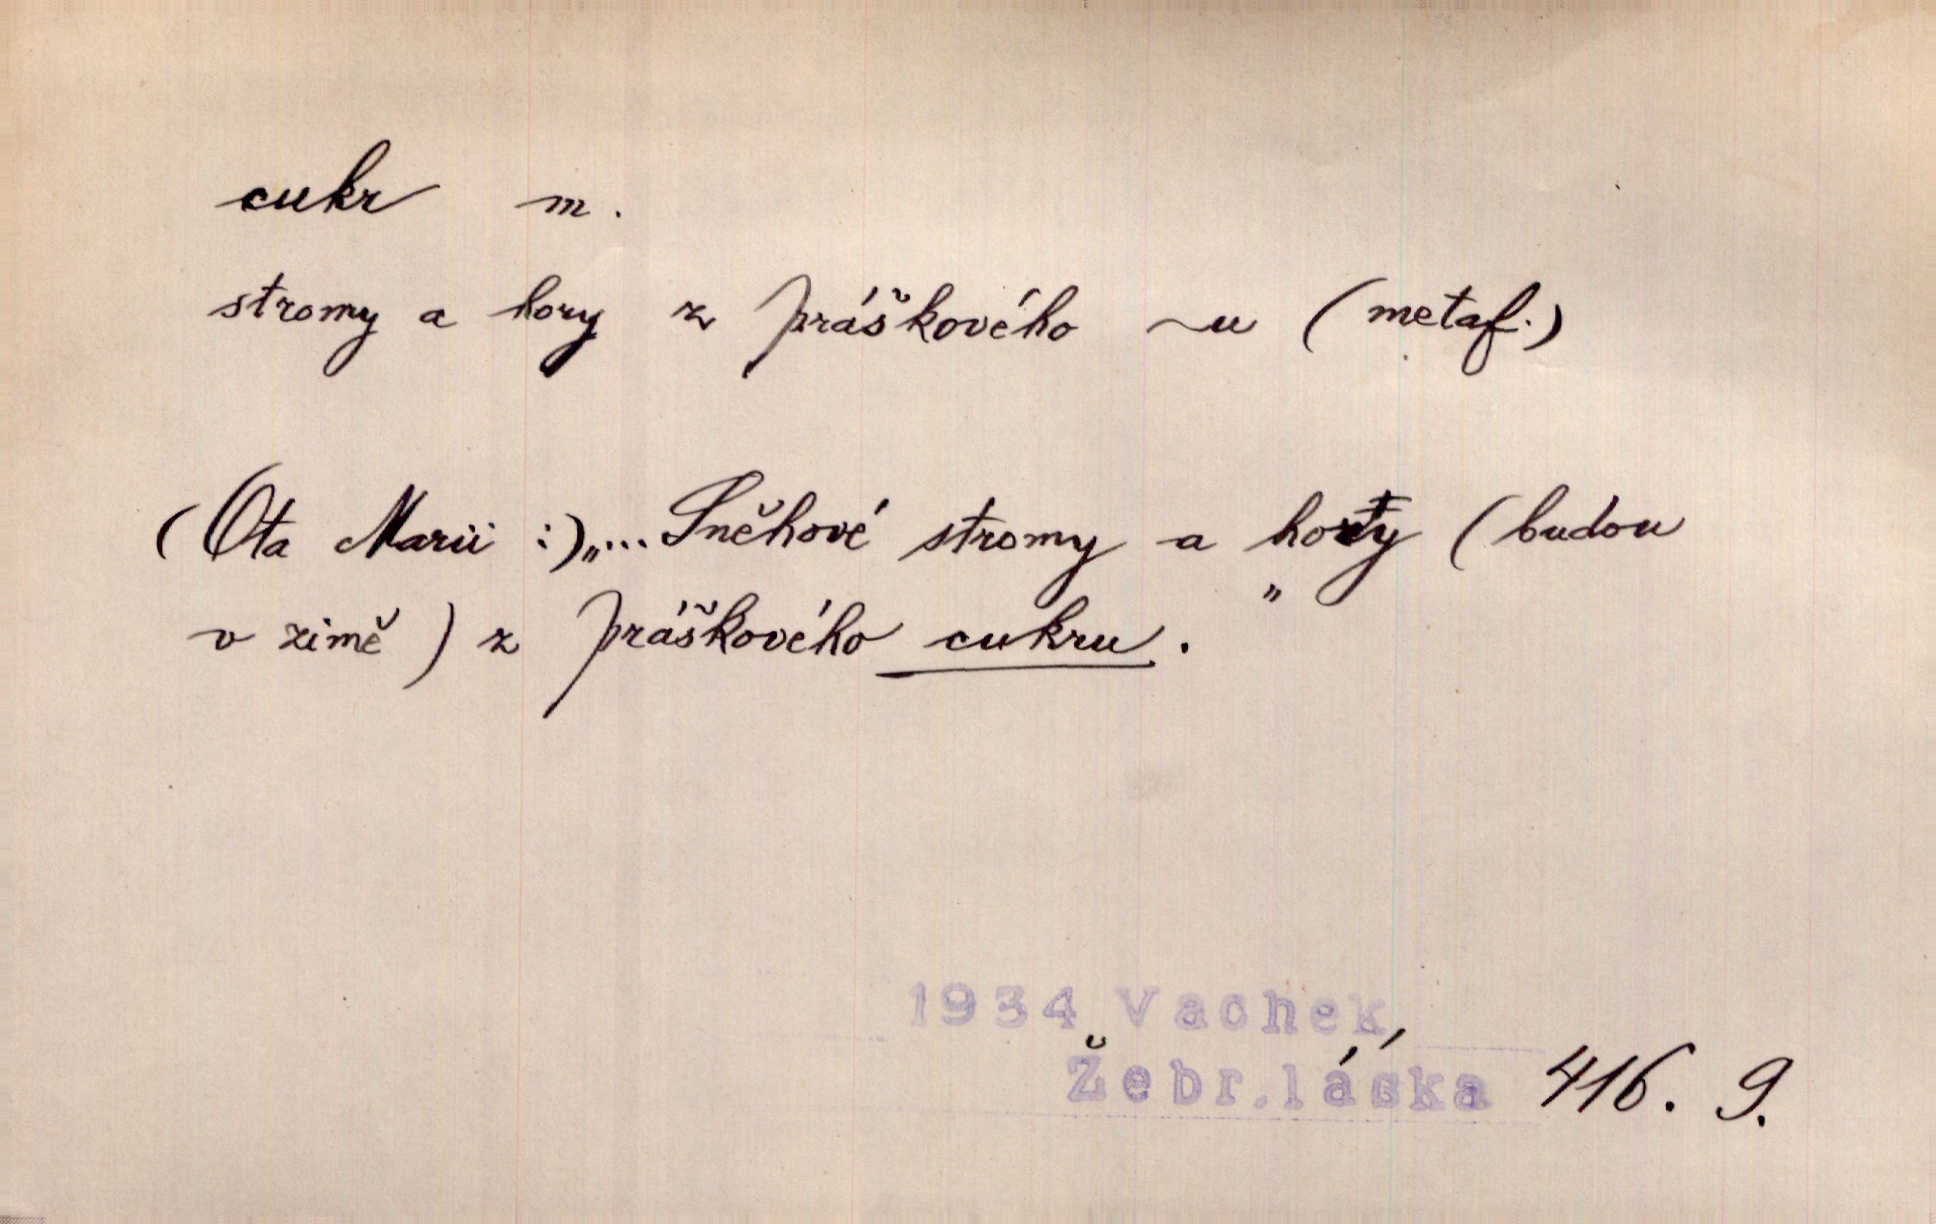 cukr m.
stromy a hory z práškového ~u (metaf.)
(Ota Marii :) „... Sněhové stromy a hory (budou
v zimě) z práškového cukru.
1934 Vachek,
Žebr.láska 416. 9.